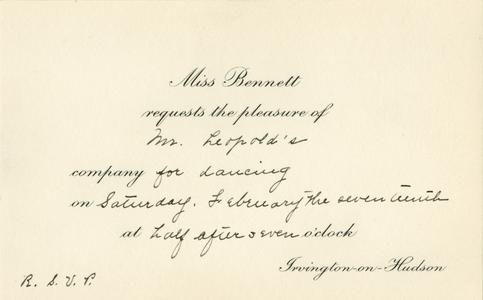 Miss Bennett
requests the pleasure of
Mr. Leopold's
company for dancing
on Saturday. February the seventeenth
at half after seven o'clock
Irvington-on-Hudson
R. S. V. P.